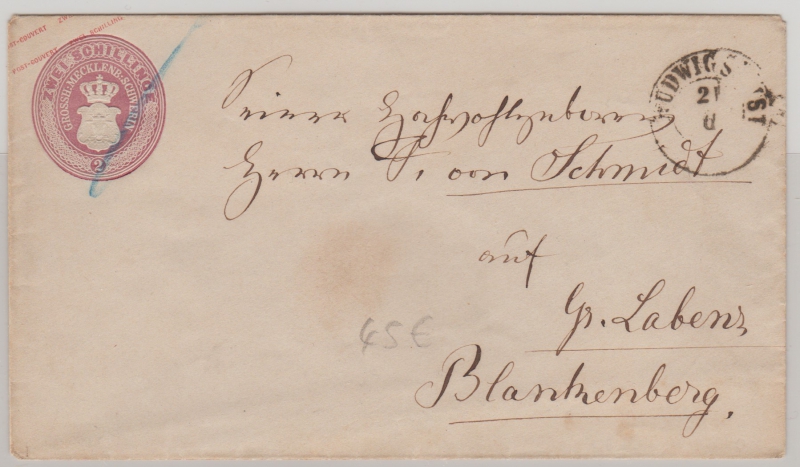 ZWEI SCHILLINGE
POST-COUVERT
POST-COUVERT ZWEI SCHILLING
ZWEI SCHILLINGE
GROSSH. MECKLENB. SCHWERIN
2
LUDWIGSLUST
21
6
Seiner Hochwohlgeboren
Herrn
von Schmidt
auf
Gr. Labenz
Blankenberg.
45 €